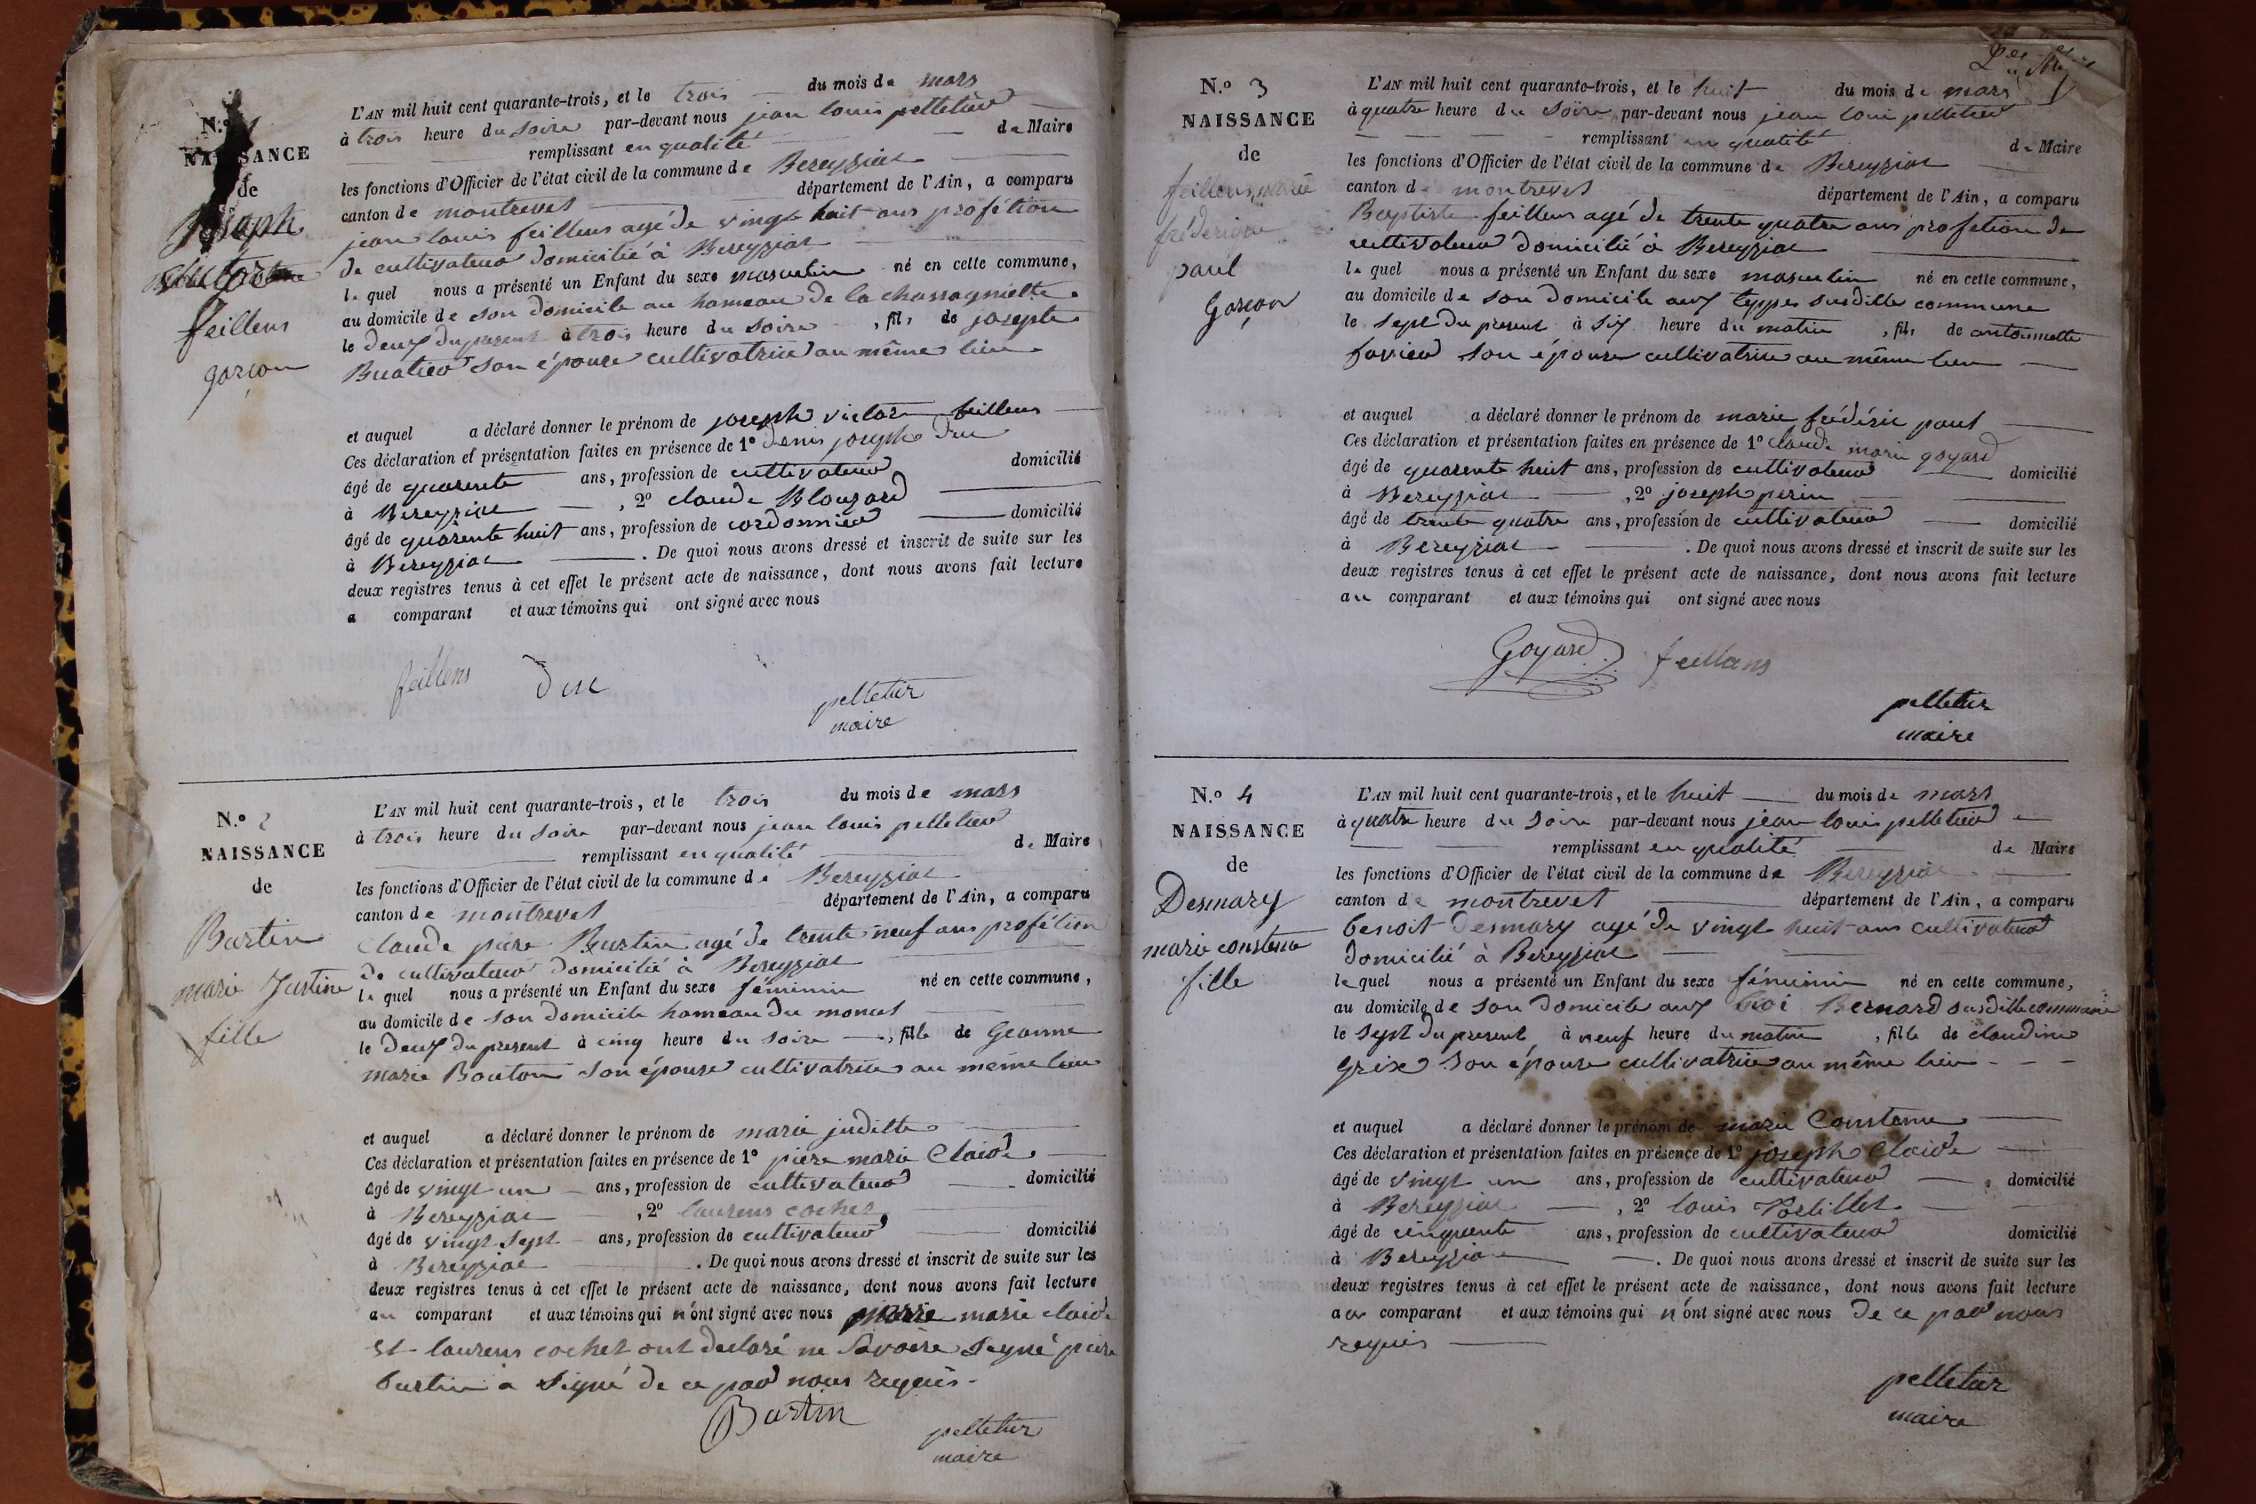 N.o
NAISSANCE
de
Joseph
victor
feillens
garçon
L'AN mil huit cent quarante-trois, et le trois du mois de mars
à trois heure du soire par-devant nous jean louis pelletier
remplissant en qualité de Maire
les fonctions d'Officier de l'état civil de la commune de Bereyziat
canton de montrevel département de l'Ain, a comparu
jean louis feillens agé de vingt huit ans profétion
de cultivateur domicilié à Bereyziat
le quel nous a présenté un Enfant du sexe masculin né en cette commune,
au domicile de son domicile au hameau de la chassagniette
le deux du present à trois heure du soire, fils de josepte
Buatier son épouse cultivatrice au même lieu
et auquel a déclaré donner le prénom de joseph victor feillens
Ces déclaration et présentation faites en présence de 1° denis joseph Duc
âgé de quarente ans, profession de cultivateur domicilié
à Bereyziat, 2° claude Blouzard
âgé de quarente huit ans, profession de cordonnier domicilié
à Bereyziat. De quoi nous avons dressé et inscrit de suite sur les
deux registres tenus à cet effet le présent acte de naissance, dont nous avons fait lecture
a comparant et aux témoins qui ont signé avec nous
feillens Duc
pelletier
maire
N.o 2
NAISSANCE
de
Burtin
marie Justine
fille
L'AN mil huit cent quarante-trois, et le trois du mois de mars
à trois heure du soire par-devant nous jean louis pelletier
remplissant en qualité de Maire
les fonctions d'Officier de l'état civil de la commune de Bereyziat
canton de montrevel département de l'Ain, a comparu
Claude piere Burtin agé de trente neuf ans profétion
de cultivateur domicilié à Bereyziat
le quel nous a présenté un Enfant du sexe féminin né en cette commune,
au domicile de son domicile hameau du monest
le deux du present à cinq heure du soire, fille de Geanne
marie Bouton son épouse cultivatrice au même lieu
et auquel a déclaré donner le prénom de marie juditte
Ces déclaration et présentation faites en présence de 1° piere marie Claide
âgé de vingt un ans, profession de cultivateur domicilié
à Bereyziat, 2° laurens cochet
âgé de vingt sept ans, profession de cultivateur domicilié
à Bereyziat. De quoi nous avons dressé et inscrit de suite sur les
deux registres tenus à cet effet le présent acte de naissance, dont nous avons fait lecture
au comparant et aux témoins qui n'ont signé avec nous marie claide
et laurens cochet ont declaré ne savoire signé piere
burtin a signé de ce par nous requis
Burtin
pelletier
maire
N.o 3
NAISSANCE
de
feillens marie
fréderique
paul
Garçon
L'AN mil huit cent quarante-trois, et le huit du mois de mars
à quatre heure du soire par-devant nous jean loui pelletier
remplissant en qualité de Maire
les fonctions d'Officier de l'état civil de la commune de Bereyziat
canton de montrevel département de l'Ain, a comparu
Baptiste feillens agé de trente quatre ans profetion de
cultivateur domicilié à Bereyziat
le quel nous a présenté un Enfant du sexe masculin né en cette commune,
au domicile de son domicile aux teppes susditte commune
le sept du present à six heure du matin, fils de antoinette
favier son épouse cultivatrice au même lieu
et auquel a déclaré donner le prénom de marie frédéric paul
Ces déclaration et présentation faites en présence de 1° claude marie goyard
âgé de quarente huit ans, profession de cultivateur domicilié
à Bereyziat, 2° joseph perin
âgé de trente quatre ans, profession de cultivateur domicilié
à Bereyziat. De quoi nous avons dressé et inscrit de suite sur les
deux registres tenus à cet effet le présent acte de naissance, dont nous avons fait lecture
au comparant et aux témoins qui ont signé avec nous
Goyard feillens
pelletier
maire
N.o 4
NAISSANCE
de
Desmary
marie constense
fille
L'AN mil huit cent quarante-trois, et le huit du mois de mars
à quatre heure du soire par-devant nous jean louis pelletier
remplissant en qualité de Maire
les fonctions d'Officier de l'état civil de la commune de Bereyziat
canton de montrevel département de l'Ain, a comparu
benoit Desmary agé de vingt huit ans cultivateur
domicilié à Bereyziat
le quel nous a présenté un Enfant du sexe féminin né en cette commune,
au domicile de son domicile aux Bernard susditte commune
le sept du present à neuf heure du matin, fille de claudine
son épouse cultivatrice au même lieu
et auquel a déclaré donner le prénom de marie Constense
Ces déclaration et présentation faites en présence de 1° joseph Claide
âgé de vingt un ans, profession de cultivateur domicilié
à Bereyziat, 2° louis
âgé de cinquente ans, profession de cultivateur domicilié
à Bereyziat. De quoi nous avons dressé et inscrit de suite sur les
deux registres tenus à cet effet le présent acte de naissance, dont nous avons fait lecture
au comparant et aux témoins qui n'ont signé avec nous de ce par nous
requis
pelletier
maire